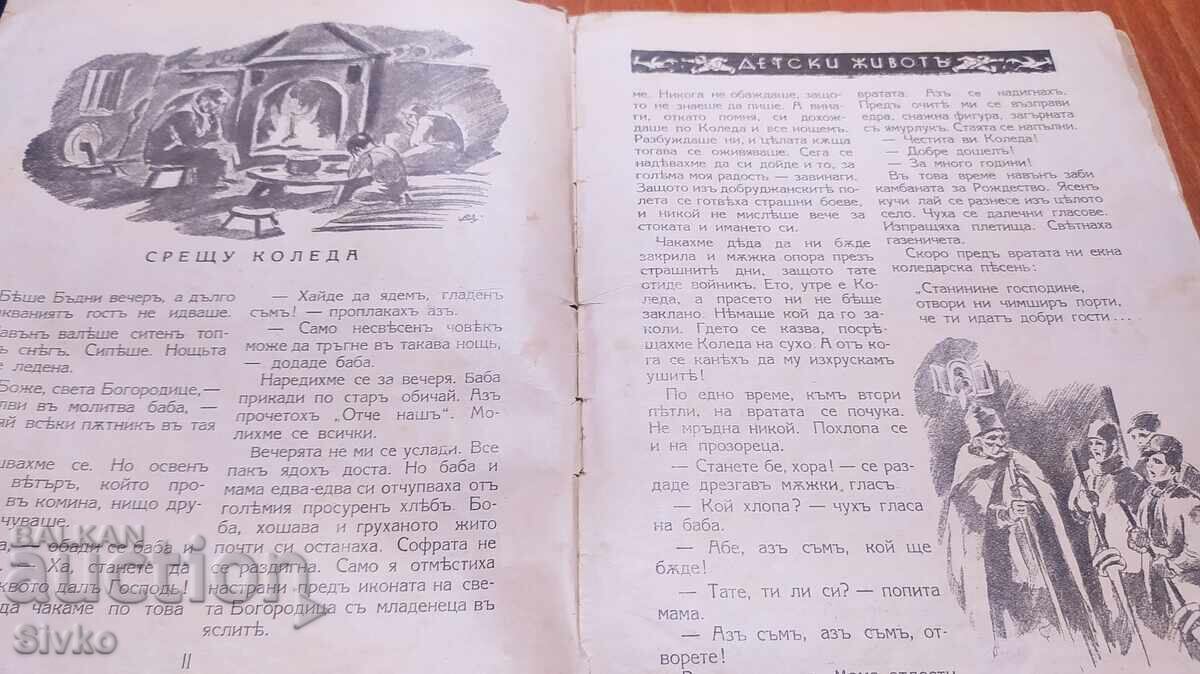 СРЕЩУ КОЛЕДА
Бѣше Бъдни вечеръ, а дълго
гостъ не идваше.
валѣше ситенъ
снѣгъ. Сипѣше. Нощьта
ледена.
Боже, света Богородице,—
въ молитва баба, —
всѣки пѫтникъ въ тая
се. Но освенъ
вѣтъръ, който
въ комина, нищо
чуваше.
— обади се баба и
— Ха, станете да
далъ Господь!
чакаме по това
II
— Хайде да ядемъ, гладенъ
съмъ! — проплакахъ азъ.
— Само несвѣсенъ човѣкъ
може да тръгне въ такава нощь,
— додаде баба.
Наредихме се за вечеря. Баба
прикади по старъ обичай. Азъ
прочетохъ „Отче нашъ“. Мо-
лихме се всички.
Вечерята не ми се услади. Все
пакъ ядохъ доста. Но баба и
мама едва-едва си отчупваха отъ
голѣмия просуренъ хлѣбъ. Бо-
ба, хошава и груханото жито
почти си останаха. Софрата не
се раздигна. Само я отмѣстиха
настрани предъ иконата на све-
та Богородица съ младенеца въ
яслитѣ.
ДЕТСКИ ЖИВОТЪ
ме. Никога не обаждаше, защо-
то не знаеше да пише. А вина-
ги, откато помня, си дохож-
даше по Коледа и все нощемъ.
Разбуждаше ни, и цѣлата кѫща
тогава се оживяваше. Сега се
надѣвахме да си дойде и то, за
голѣма моя радость — завинаги.
Защото изъ добруджанскитѣ по-
лета се готвѣха страшни боеве,
и никой не мислѣше вече за
стоката и имането си.
Чакахме дѣда да ни бѫде
закрила и мѫжка опора презъ
страшнитѣ дни, защото тате
отиде войникъ. Ето, утре е Ко-
леда, а прасето ни не бѣше
заклано. Нѣмаше кой да го за-
коли. Гдето се казва, посрѣ-
щахме Коледа на сухо. А отъ ко-
га се канѣхъ да му изхрускамъ
ушитѣ!
По едно време, къмъ втори
пѣтли, на вратата се почука.
Не мръдна никой. Похлопа се
и на прозореца.
— Станете бе, хора! — се раз-
даде дрезгавъ мѫжки гласъ.
— Кой хлопа? — чухъ гласа
на баба.
— Абе, азъ съмъ, кой ще
бѫде!
— Тате, ти ли си? — попита
мама.
— Азъ съмъ, азъ съмъ, от-
ворете!
вратата. Азъ се надигнахъ.
Предъ очитѣ ми се възправи
едра, снажна фигура, загърната
съ ямурлукъ. Стаята се напълни.
— Честита ви Коледа!
— Добре дошелъ!
— За много години!
Въ това време навънъ заби
камбаната за Рождество. Ясенъ
кучи лай се разнесе изъ цѣлото
село. Чуха се далечни гласове.
Изпращяха плетища. Свѣтнаха
газеничета.
Скоро предъ вратата ни екна
коледарска пѣсень:
„Станинине господине,
отвори ни чимширъ порти,
че ти идатъ добри гости . . .
BALKAN
auction
Sivko